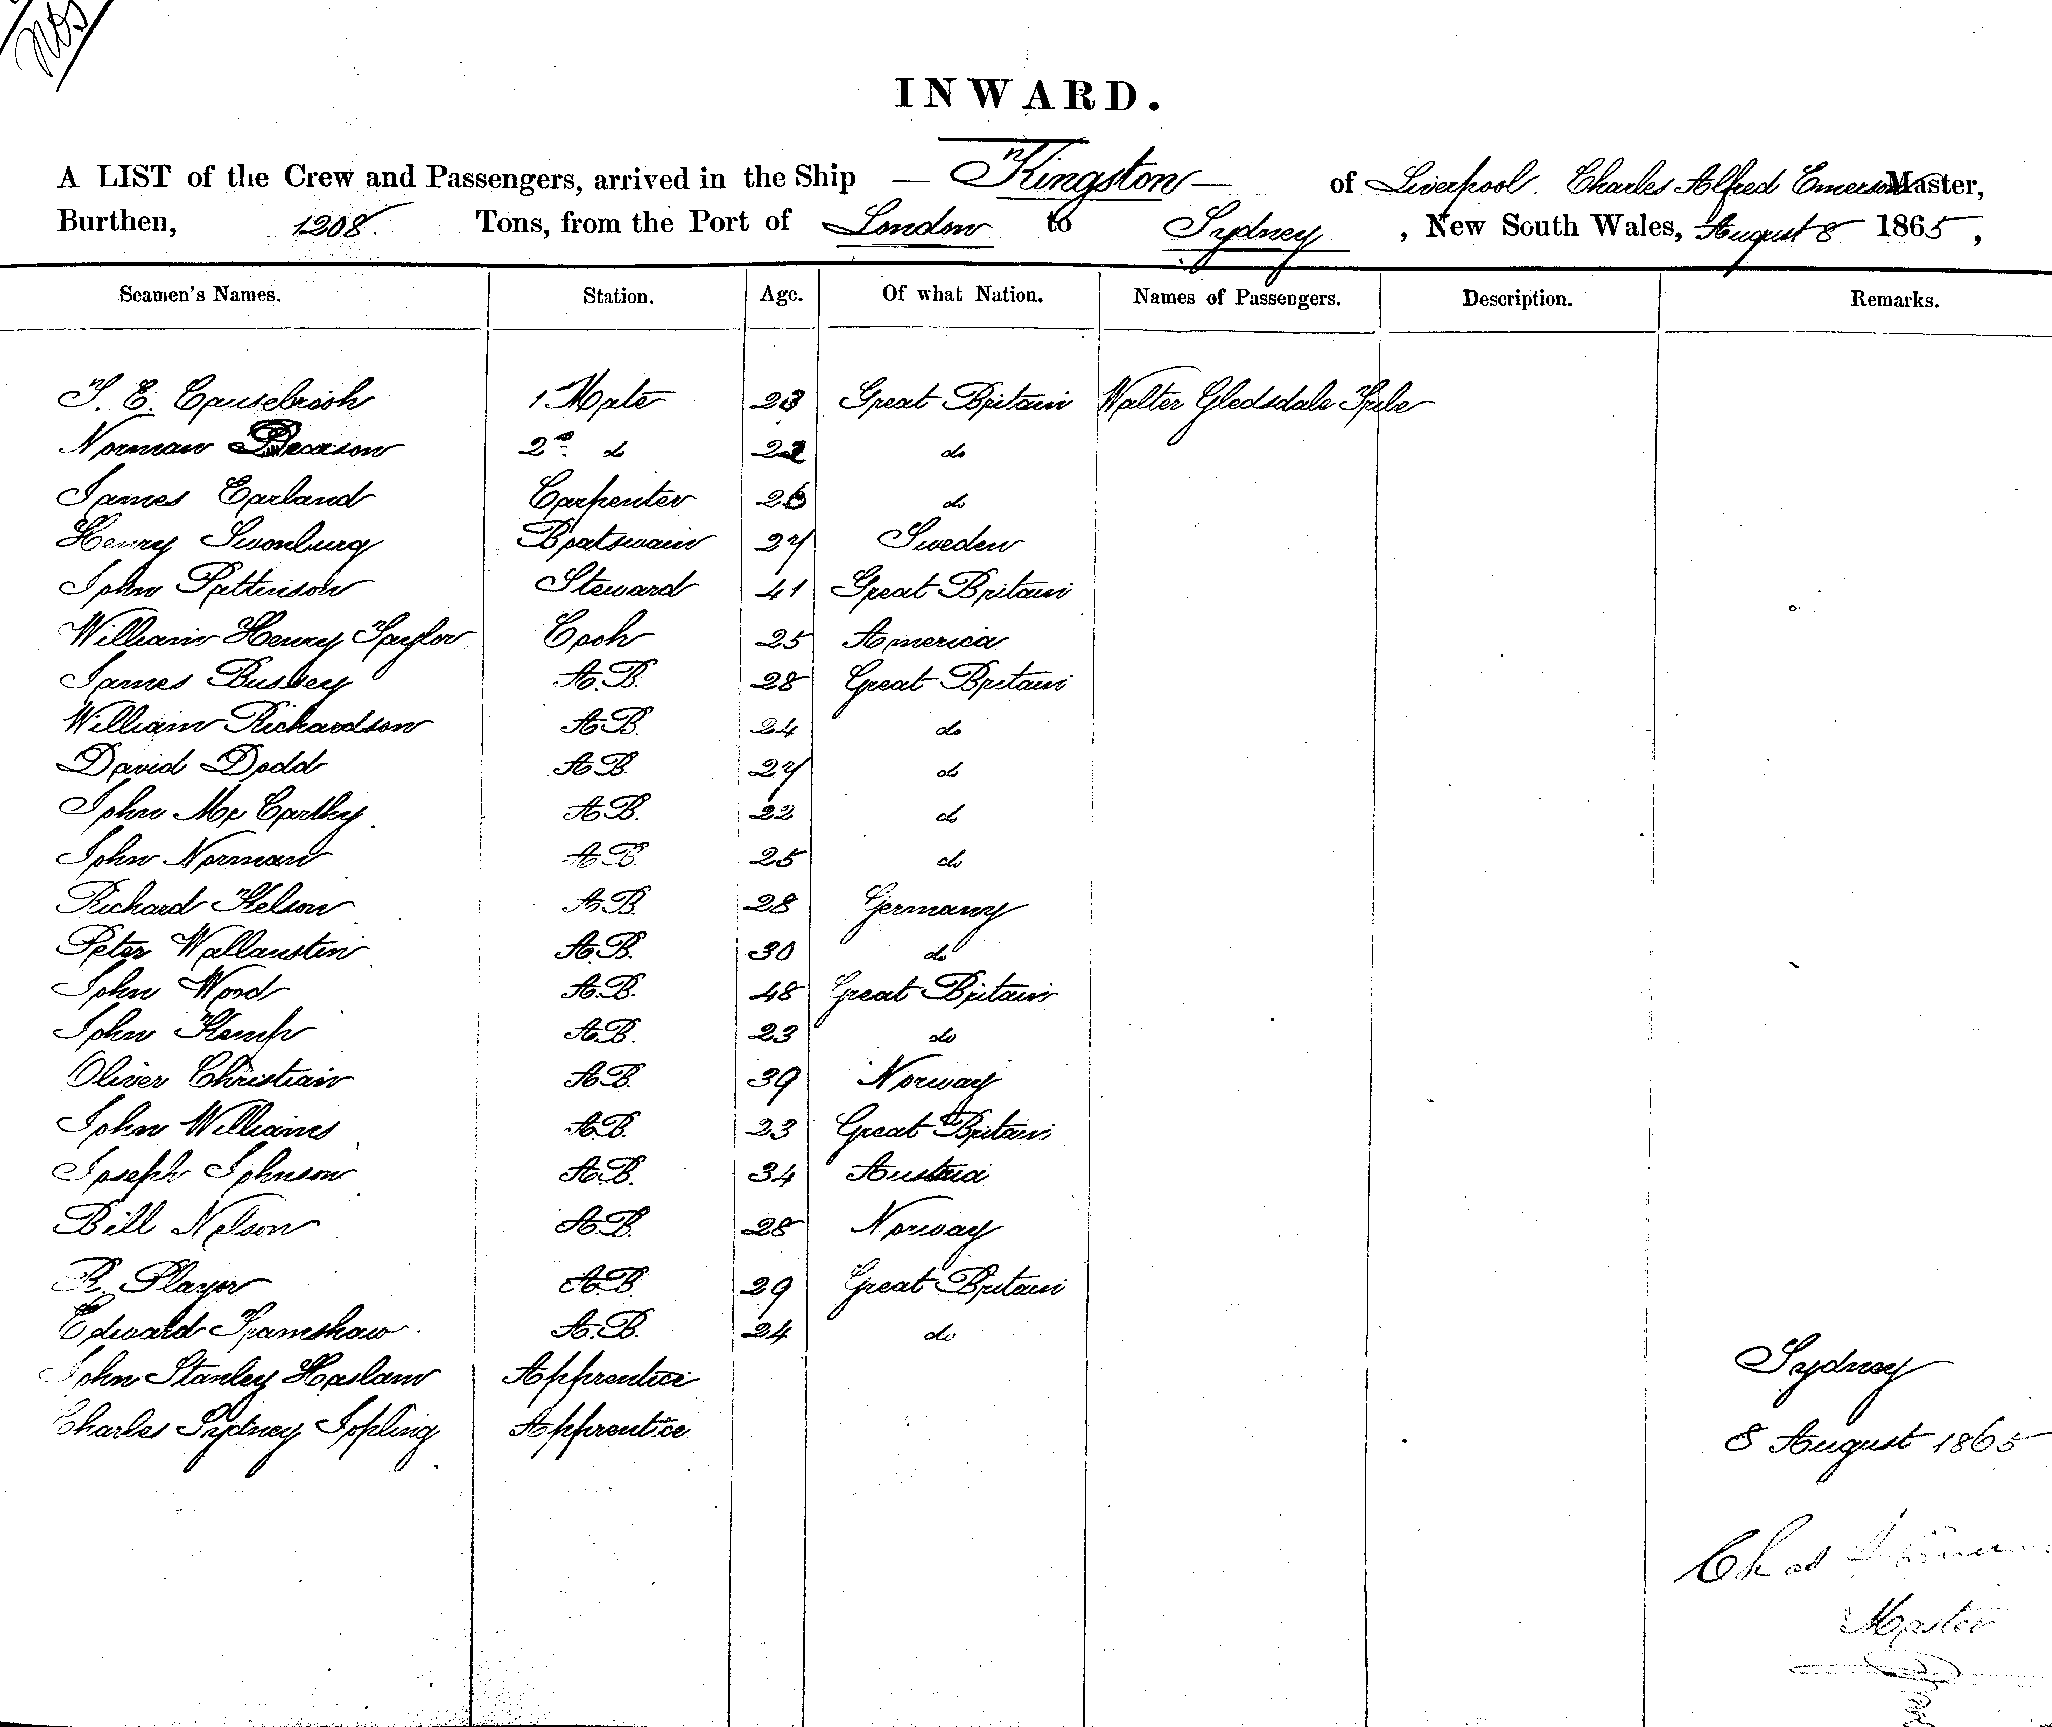 INWARD.
A LIST of the Crew and Passengers, arrived in the Ship — Kingston — of Liverpool Charles Alfred Emerson Master,
Burthen, 1208 Tons, from the Port of London to Sydney, New South Wales, August 8 1865,
Seamen's Names. Station. Age. Of what Nation. Names of Passengers. Description. Remarks.
T. E. 1 Mate 23 Great Britain Walter Gledsdale
Norman 2nd do 22 do
James Earland Carpenter 26 do
Henry Swonburg Boatswain 27 Sweden
John Pattinson Steward 41 Great Britain
William Henry Taylor Cook 25 America
James Bussey A.B. 28 Great Britain
William Richardson A.B. 24 do
David Dodd A.B. 27 do
John Mc Carthy A.B. 22 do
John Norman A.B. 25 do
Richard Kelson A.B. 28 Germany
Peter Wallaustin A.B. 30 do
John Wood A.B. 48 Great Britain
John Kemp A.B. 23 do
Oliver Christian A.B. 39 Norway
John Williams A.B. 23 Great Britain
Joseph Johnson A.B. 34 Austria
Bill Nelson A.B. 28 Norway
R. Player A.B. 29 Great Britain
Edward A.B. 24 do
John Stanley Haslam Apprentice
Charles Sydney Jopling Apprentice
Sydney
8 August 1865
Chas
Master